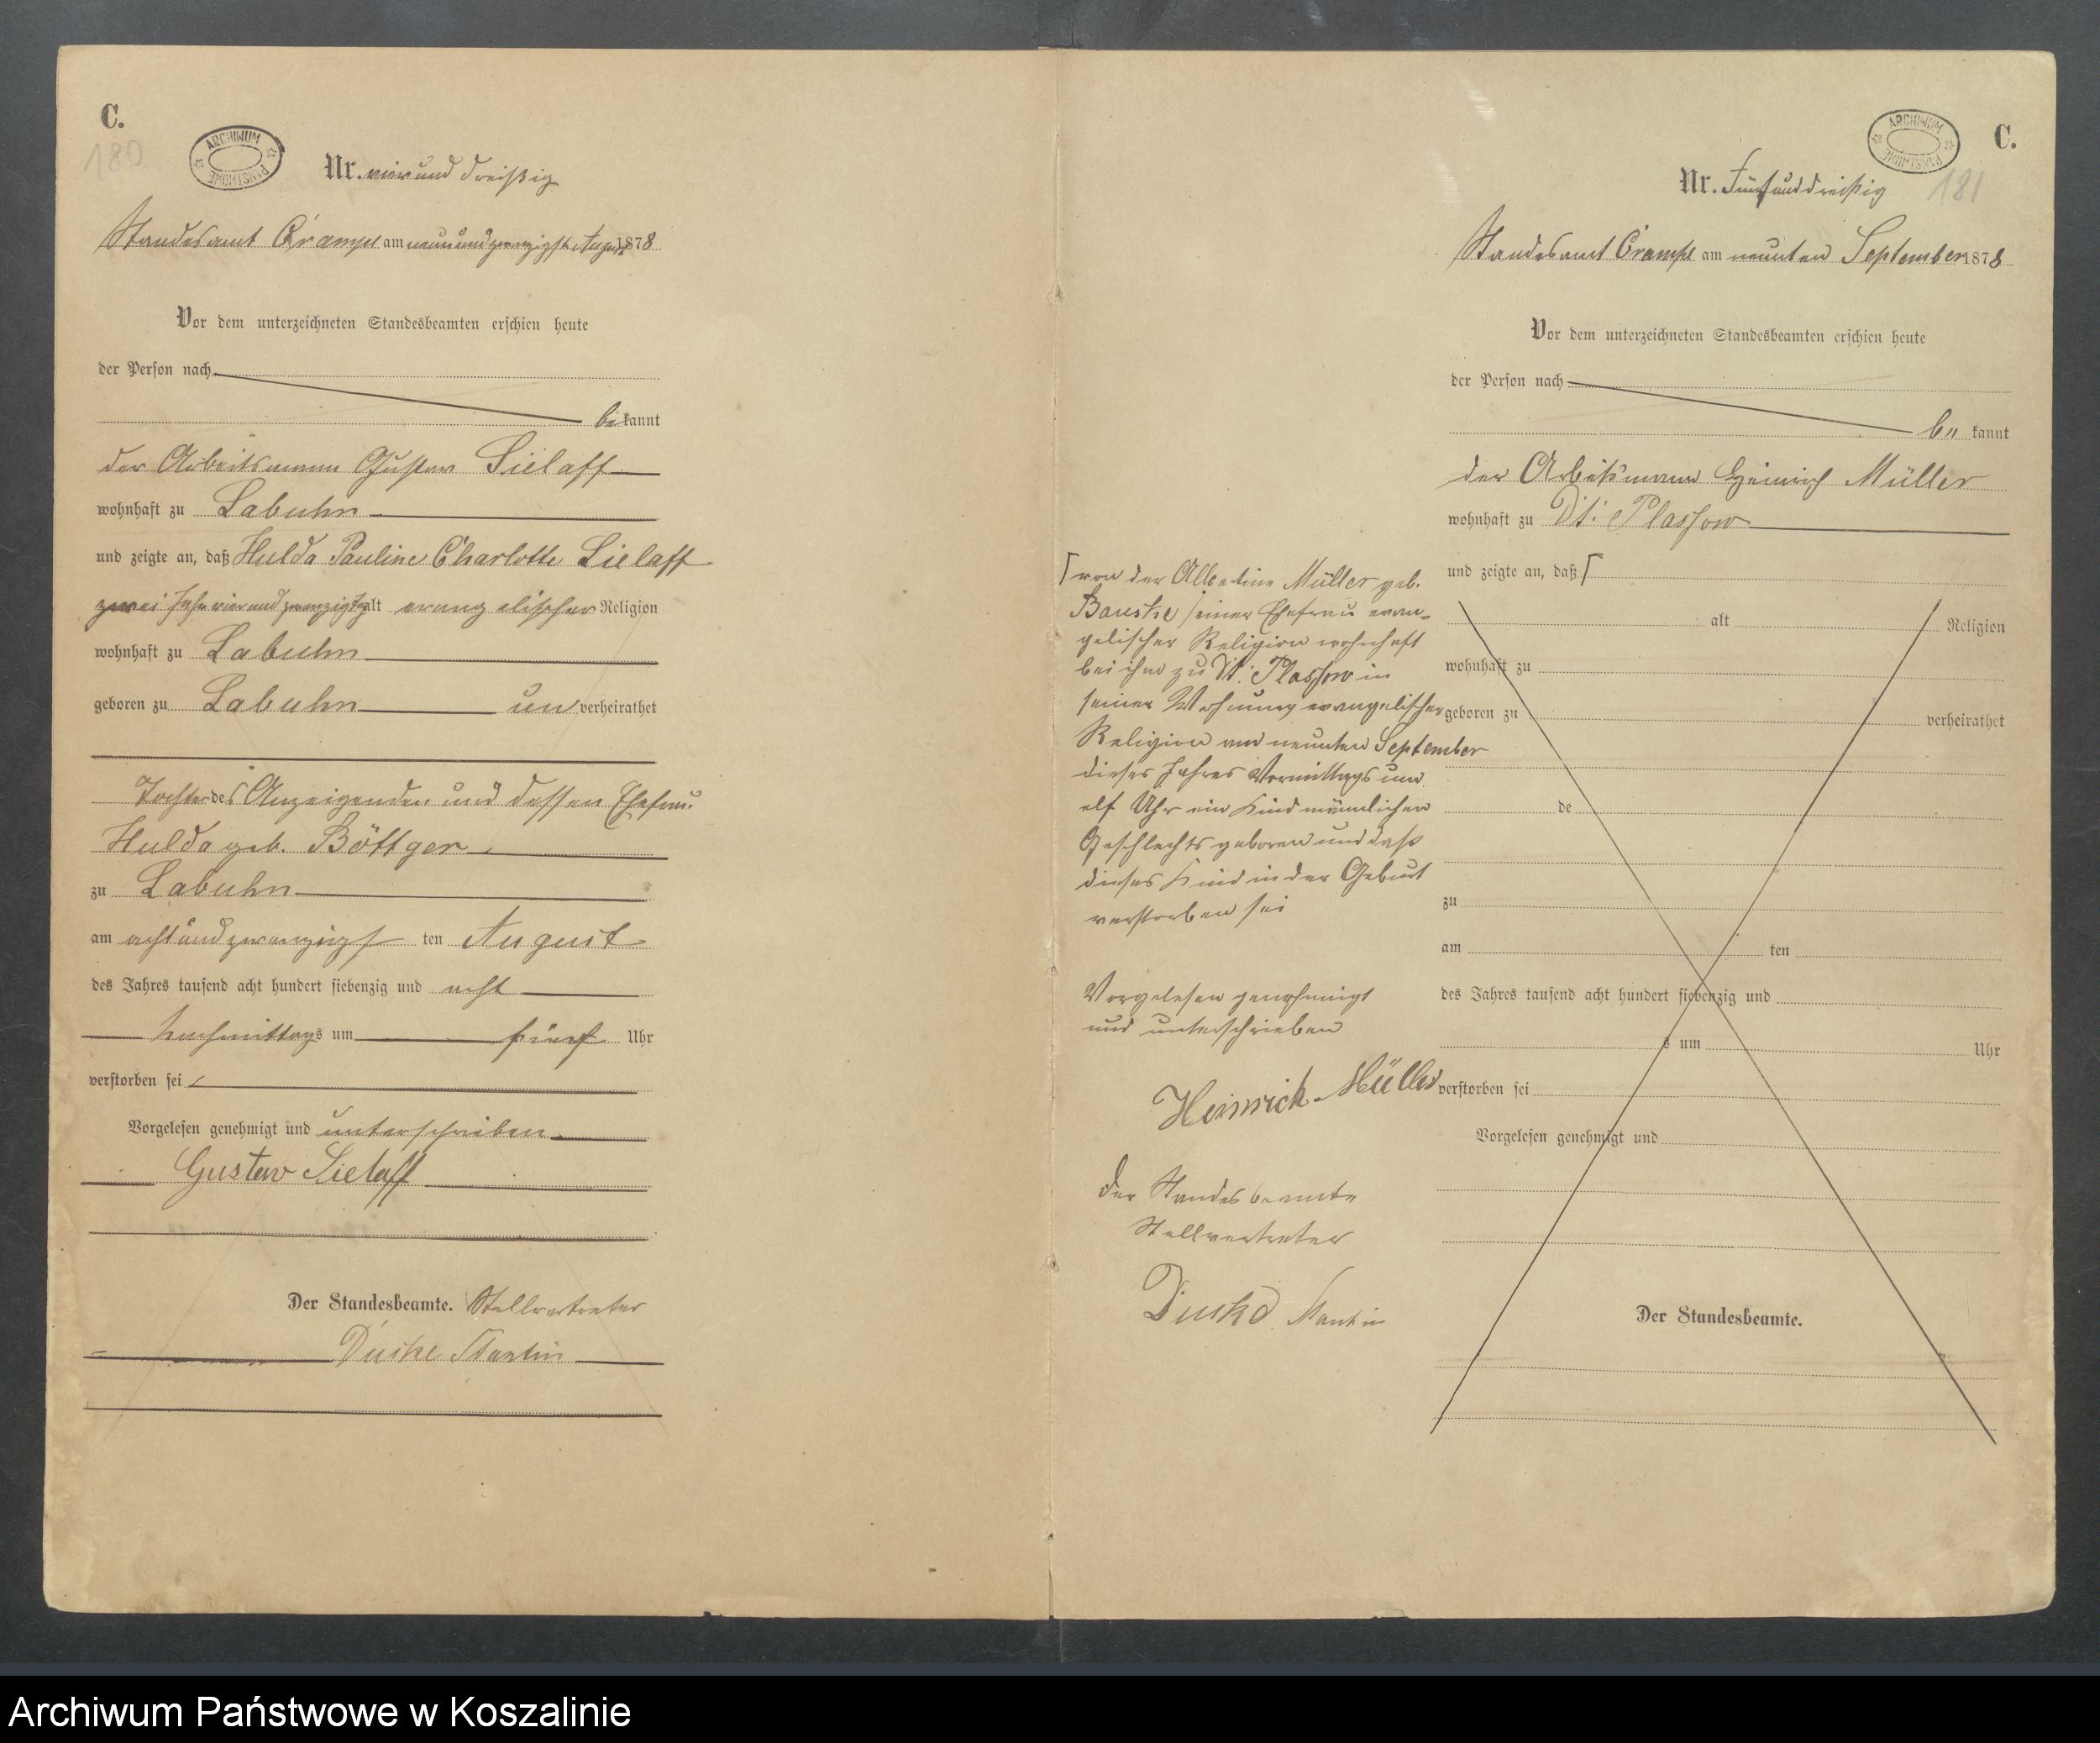 C.
180
ARCHIWUM PAŃSTWOWE
Nr. vier und dreißig
Standesamt Crampe am neun und zwanzigsten August 1878
Vor dem unterzeichneten Standesbeamten erschien heute
der Person nach
bekannt
der Arbeitsmann Gustav Sielaff
wohnhaft zu Labuhn
und zeigte an, daß Hulda Pauline Charlotte Sielaff
zwei Jahr vier und zwanzig Tage alt evangelischer Religion
wohnhaft zu Labuhn
geboren zu Labuhn unverheirathet
Tochter des Anzeigenden und dessen Ehefrau
Hulda geb. Böttger
zu Labuhn
am acht und zwanzigsten August
des Jahres tausend acht hundert siebenzig und acht
Nachmittags um fünf Uhr
verstorben sei
Vorgelesen genehmigt und unterschrieben
Gustav Sielaff
Der Standesbeamte. Stellvertreter
C.
ARCHIWUM PAŃSTWOWE
181
Nr. Fünf und dreißig
Standesamt Crampe am neunten September 1878
Vor dem unterzeichneten Standesbeamten erschien heute
der Person nach
be kannt
der Arbeitsmann Heinrich Müller
wohnhaft zu Dt: Plassow
und zeigte an, daß ⌈
alt Religion
wohnhaft zu
geboren zu verheirathet
de
zu
am ten
des Jahres tausend acht hundert siebenzig und
s um Uhr
verstorben sei
Vorgelesen genehmigt und
Der Standesbeamte.
⌈ von der Albertine Müller geb.
seiner Ehefrau evan-
gelischer Religion wohnhaft
bei ihm zu Dt: Plassow in
seiner Wohnung evangelischer
Religion am neunten September
dieses Jahres Vormittags um
elf Uhr ein Kind männlichen
Geschlechts geboren und daß
dieses Kind in der Geburt
verstorben sei
Vorgelesen genehmigt
und unterschrieben
Heinrich Müller
Der Standesbeamte
Stellvertreter
Archiwum Państwowe w Koszalinie